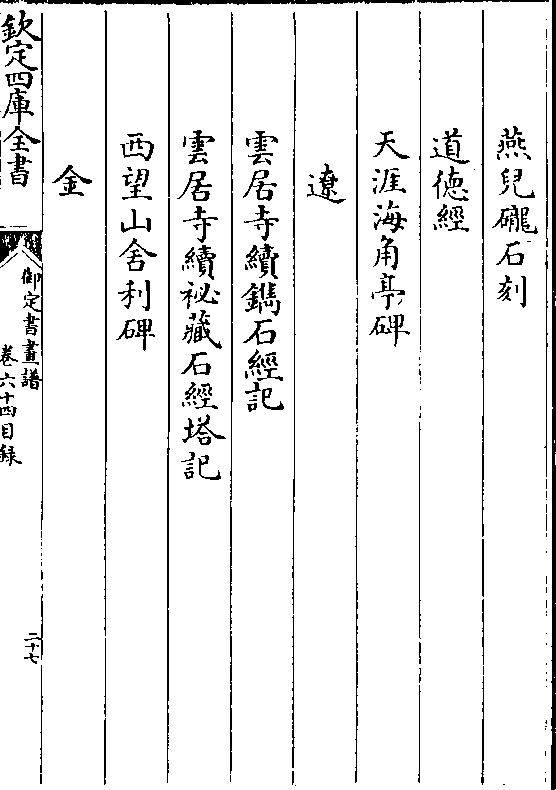 燕兒䃧石刻
道德經
天涯海角亭碑
遼
雲居寺續鐫石經記
雲居寺續祕藏石經塔記
西望山舍利碑
金
欽定四庫全書
御定書畫譜
卷六十四目録
二十七